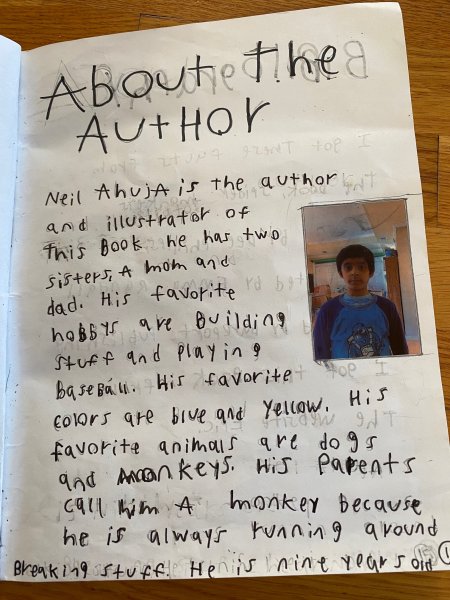 About The
AutHOR
Neil AhujA is the author
and illustrator of
This Book he has two
sisters, A mom and
dad. His favorite
hobbys are Building
stuff and playing
baseball. His favorite
colors are blue and Yellow. His
favorite animals are dogs
and monkeys. His Parents
call him A monkey because
he is always running around
Breaking stuff. He is nine years old